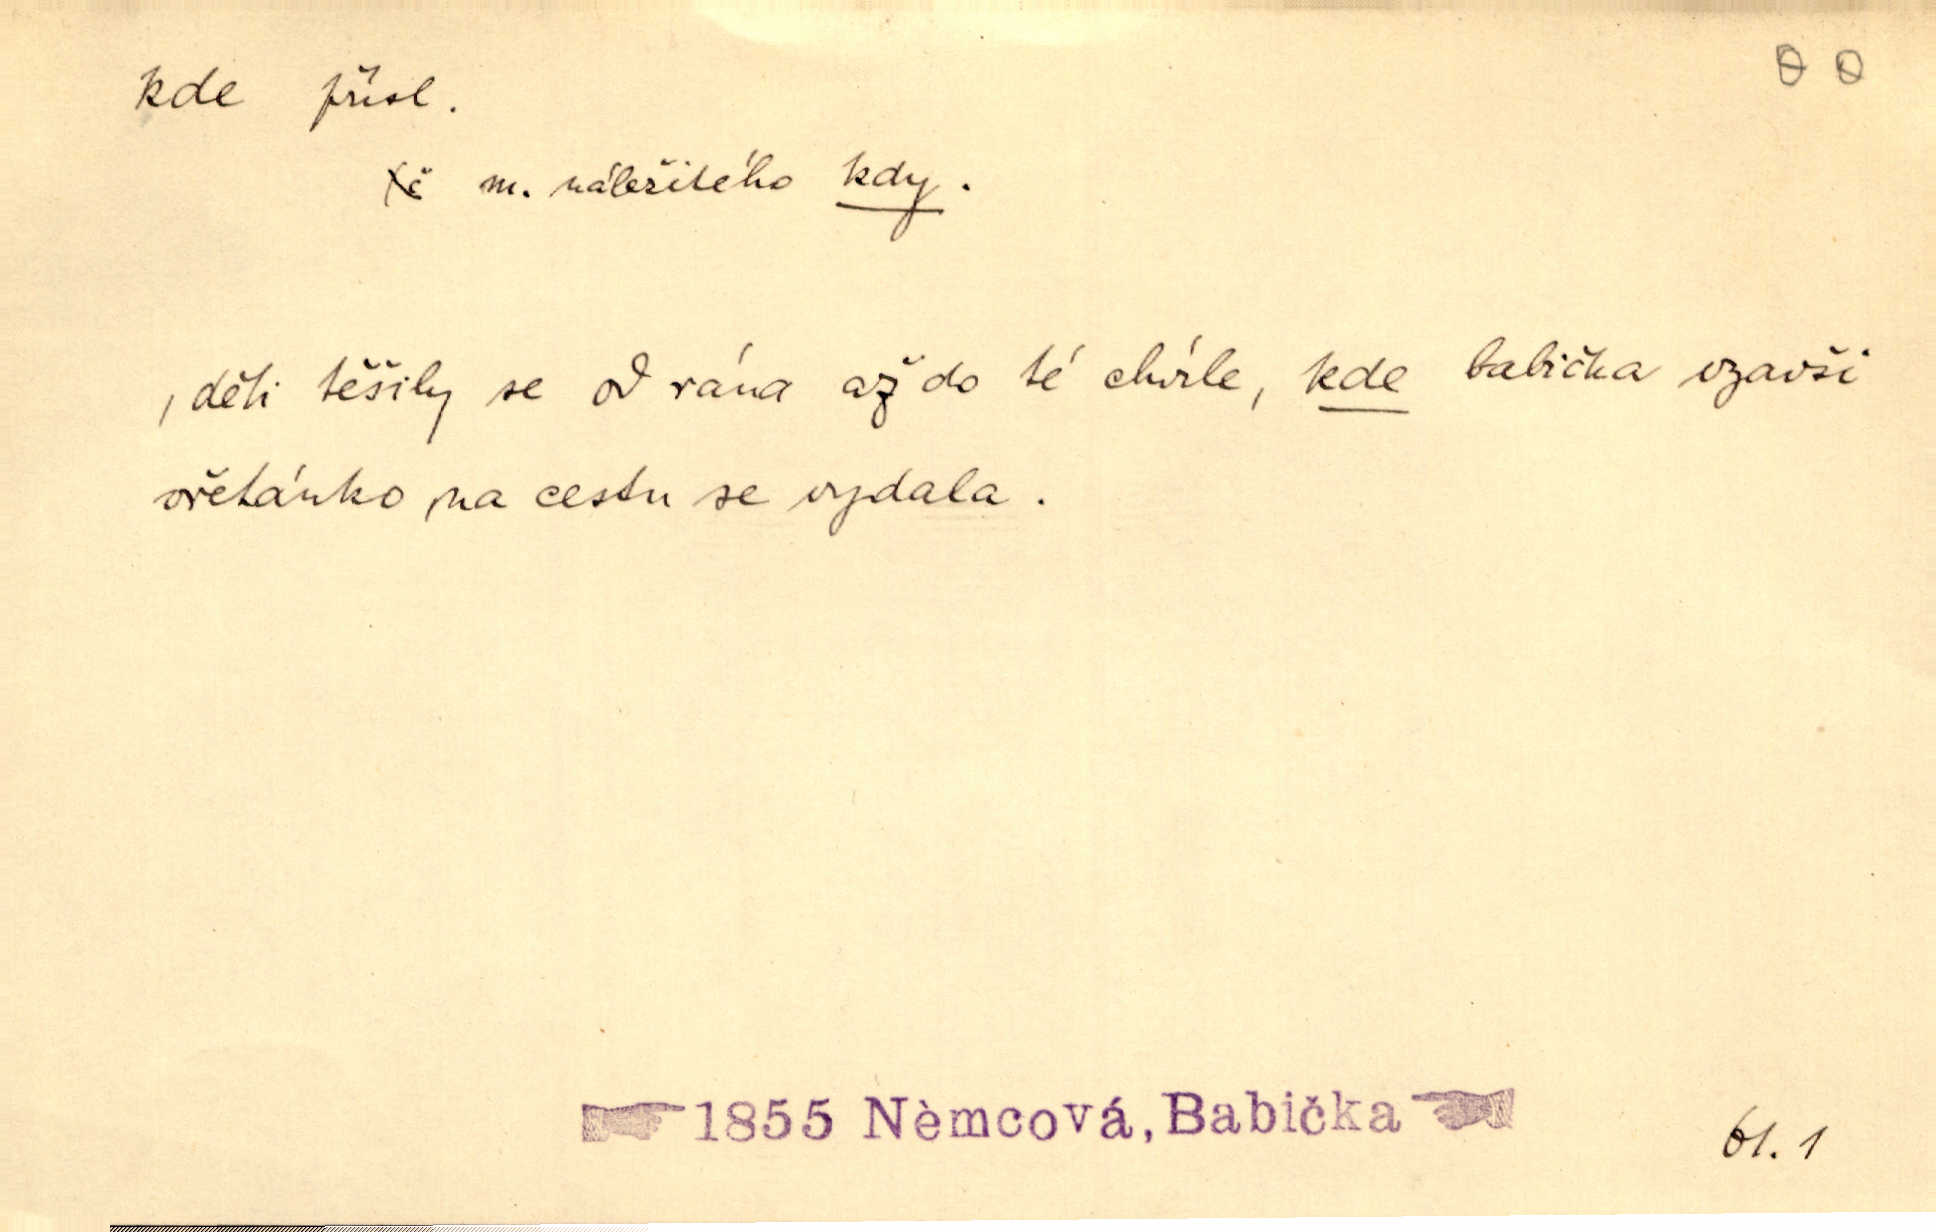 kde přísl.
m. náležitého kdy.
, děti těšily se od rána až do té chvíle, kde babička vzavši
vřetánko, na cestu se vydala.
1855 Nèmcová, Babička
61. 1